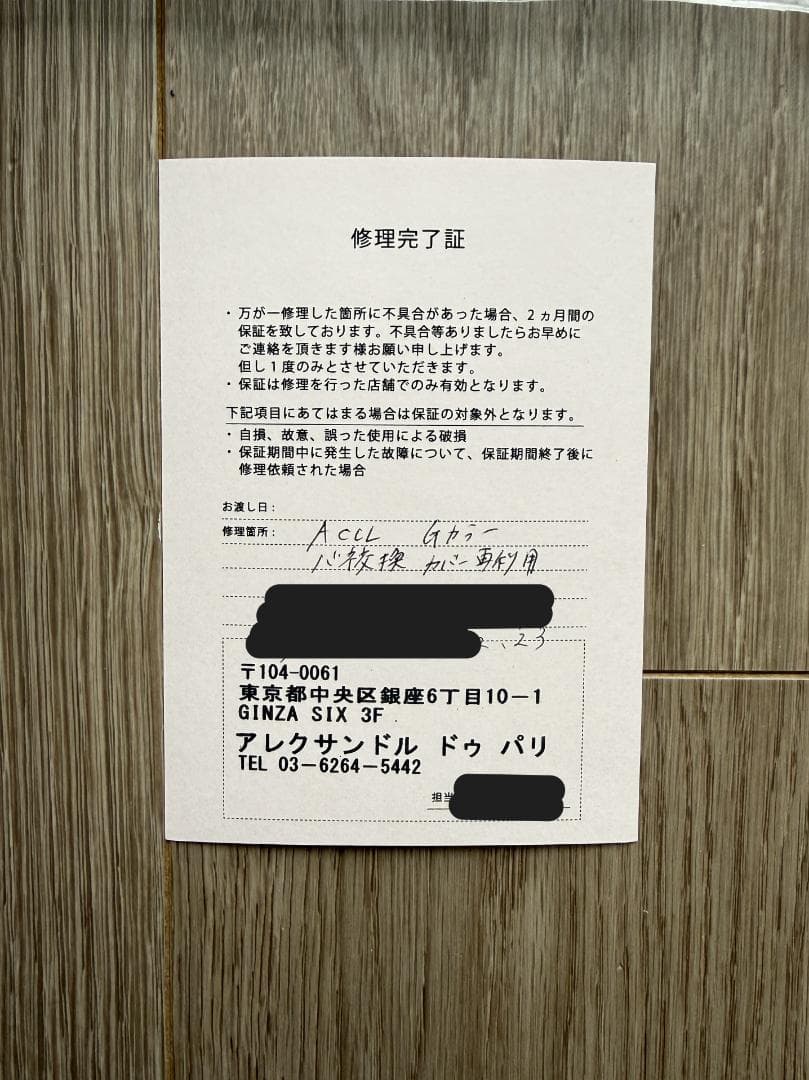 修理完了証
・万が一修理した箇所に不具合があった場合、2ヵ月間の
保証を致しております。不具合等ありましたらお早めに
ご連絡を頂きます様お願い申し上げます。
但し1度のみとさせていただきます。
・保証は修理を行った店舗でのみ有効となります。
下記項目にあてはまる場合は保証の対象外となります。
・自損、故意、誤った使用による破損
・保証期間中に発生した故障について、保証期間終了後に
修理依頼された場合
お渡し日：
修理箇所： ACCL Gカラー
バネ交換 カバー再利用
2.23
〒104-0061
東京都中央区銀座6丁目10－1
GINZA SIX 3F
アレクサンドル ドゥ パリ
TEL 03－6264－5442
担当